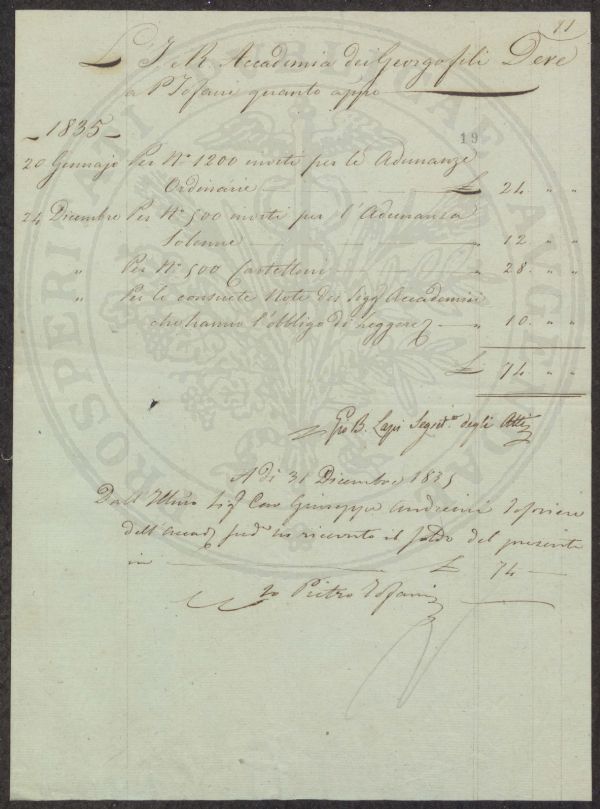 91
L' I. e R. Accademia dei Georgofili Deve
a P. Tofani quanto appo
19
1835
20 Gennajo Per N° 1200 inviti per le Adunanze
Ordinarie £ 24. " "
24 Dicembre Per N° 500 inviti per l'Adunanza
Solenne " 12. " "
" Per N° 500 Cartelloni " 28. " "
" Per le consuete Note dei Sigg Accademici
che hanno l'obbligo di Leggere " 10. " "
£ 74. " "
Gio B. Lapi Segret.° degli Atti
A dì 31 Dicembre 1835
Dall' Illmo Sig Cav Giuseppe Andreini Tesoriere
dell' Accad sud ho ricevuto il saldo del presente
in £ 74
Io Pietro Tofani
PROSPERITATI PUBLICAE AUGENDAE